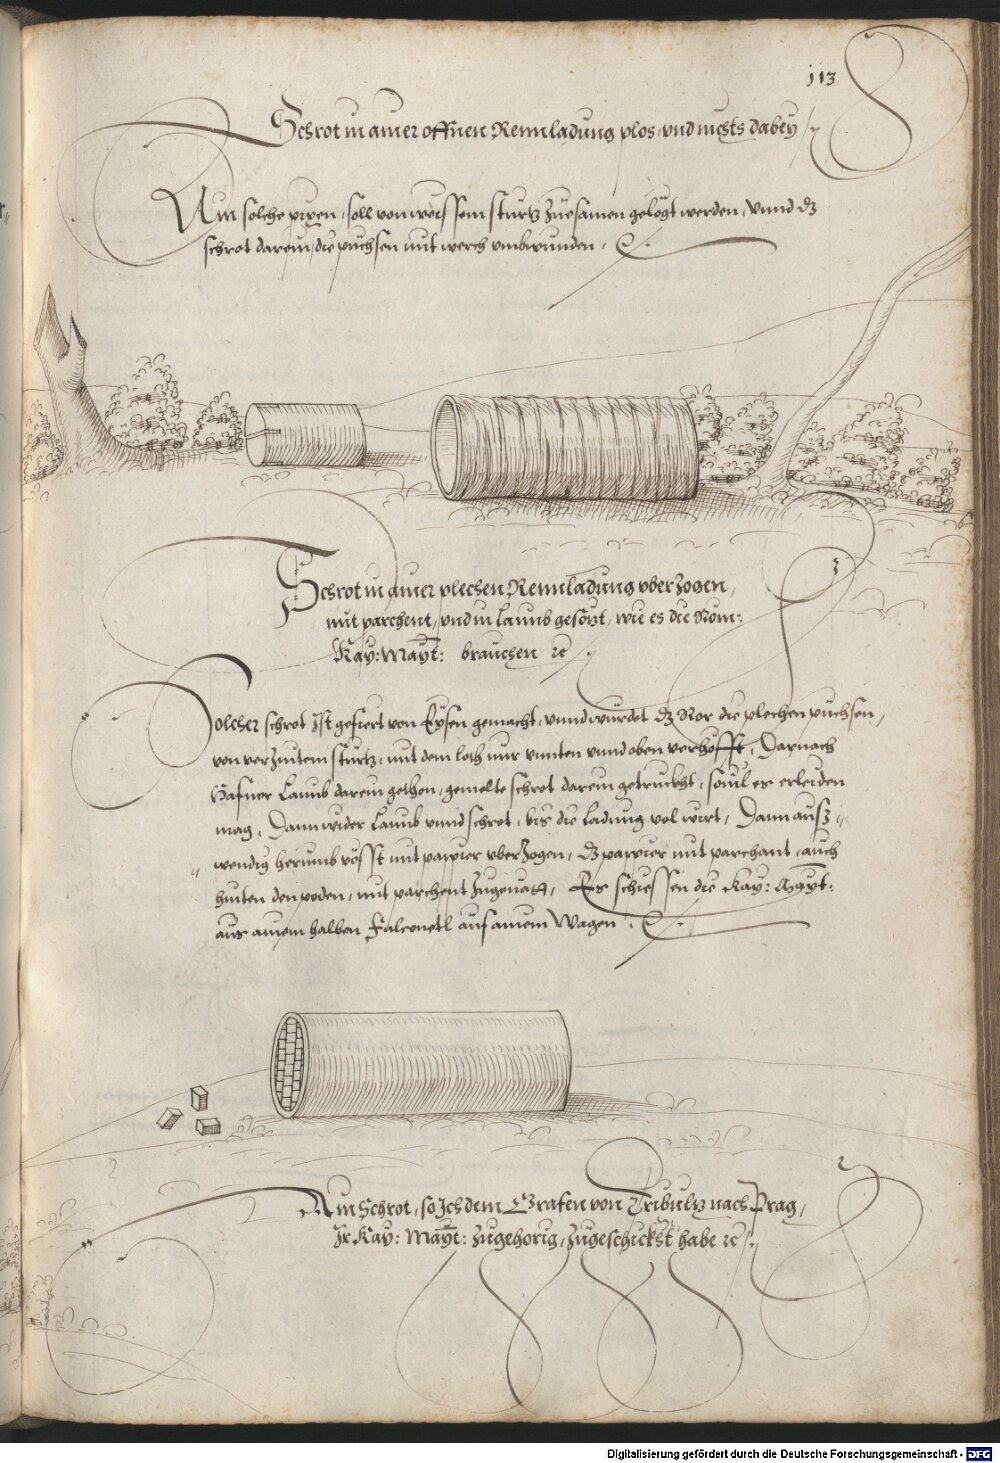 113
Schrot in ainer offnen Rennladung plos und nichts dabey
Ain solche pixen, soll von weissem sturtz züesamen gelögt werden, Vnnd dz
schrot darein, die püchsen mit werch vmbwunden.
Schrot in ainer plechen Rennladung vberzogen,
mit parchent, vnd in laimb gesötzt, wie es die Röm:
Kay: Mayt: brauchen
Solcher schrot Ist gefiert von Eÿsen gemacht, vnnd würdet dz Ror die plechen püchsen,
von verzintem sturtz, mit dem loth nur vnnten vnnd oben verhöfft, Darnach
Hafner laimb darein gethon, gemelte schrot darein getruckht, souil er erleiden
mag, Dann wider laimb vnnd schrot, bis die ladung vol wirt, Dann ausz
wendig herumb vösst mit pappier vberzogen, dz pappier mit parchant, auch
hinten den poden, mit parchent zugenätt, Es schiessen die Kay: Mayt:
aus ainem halben Falconetl auf ainem Wagen
Ain Schrot, so Ich dem Grafen von Tribultz nach Prag,
Ir Kay: Mayt: zugehorig, zugeschickht habe
Digitalisierung gefördert durch die Deutsche Forschungsgemeinschaft - DFG